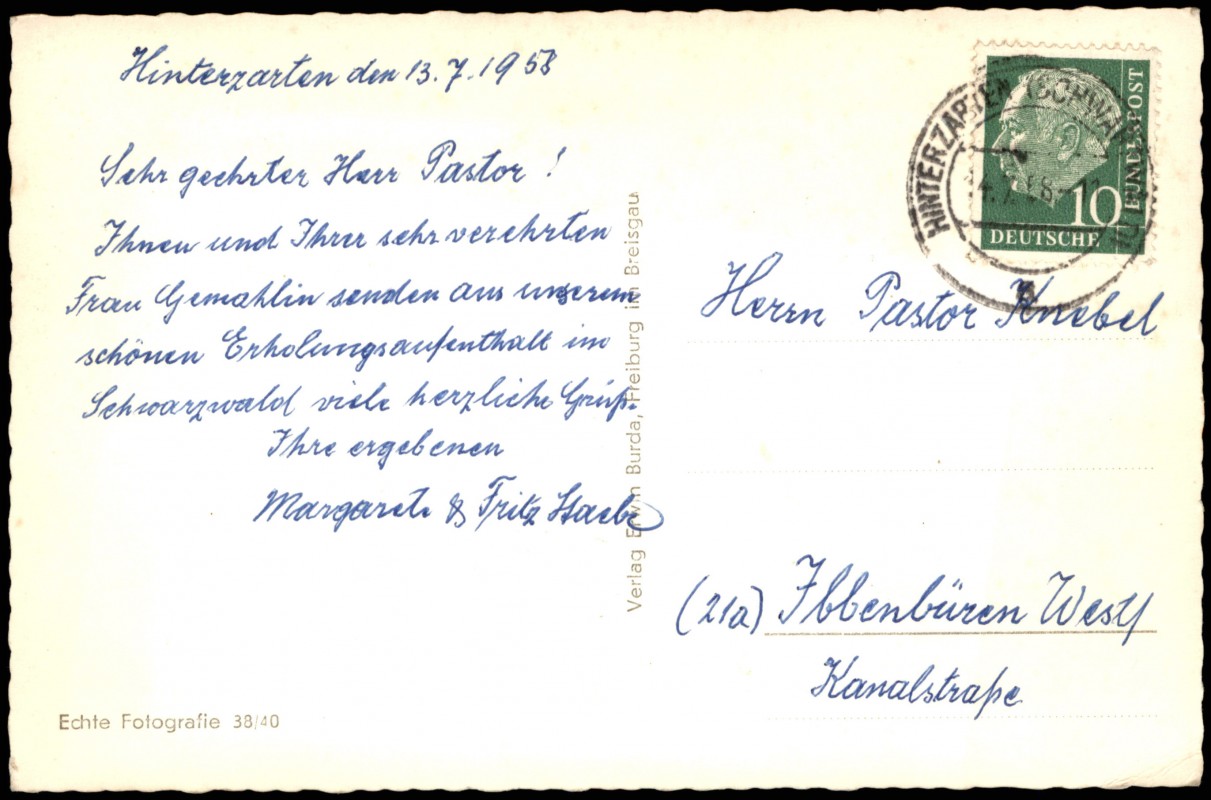 Hinterzarten den 13.7.1958
Sehr geehrter Herr Pastor!
Ihnen und Ihrer sehr verehrten
Frau Gemahlin senden aus unserem
schönen Erholungsaufenthalt im
Schwarzwald viele herzliche Grüße
Ihre ergebenen
Margarete & Fritz
Echte Fotografie 38/40
Verlag Erwin Burda, Freiburg im Breisgau
HINTERZARTEN (SCHWARZW
10
DEUTSCHE
BUNDESPOST
Herrn Pastor Knebel
(21a) Ibbenbüren Westf
Kanalstraße